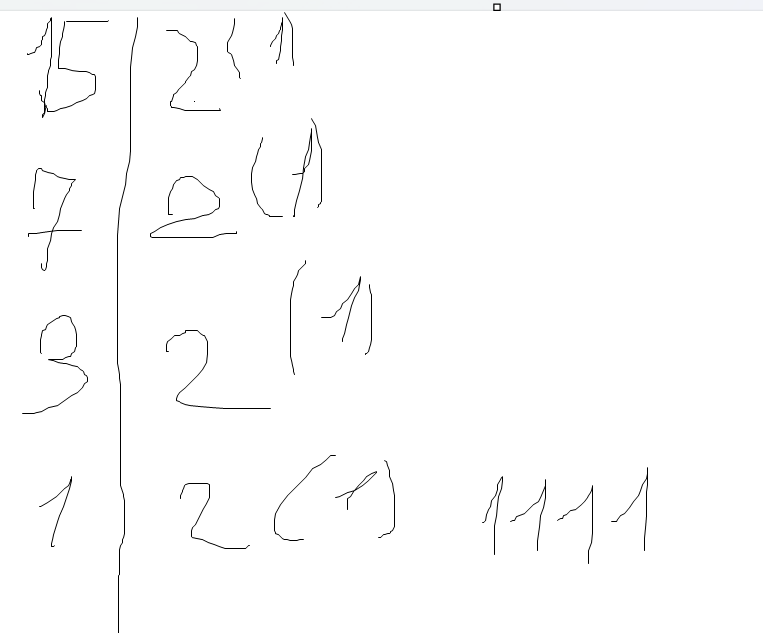 15 | 2 (1)
7 | 2 (1)
3 | 2 (1)
1 | 2 (1) 1111